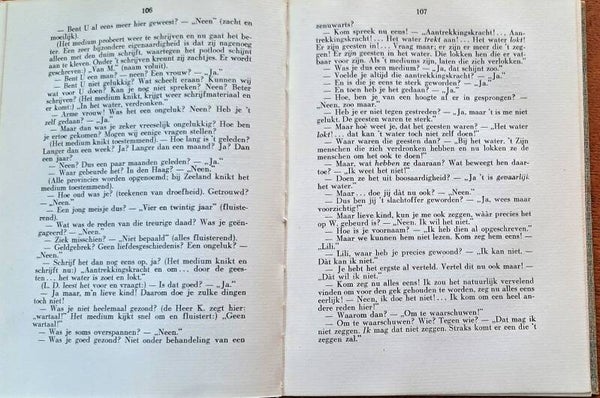 106
— Bent U al eens meer hier geweest? — „Neen" (zacht en
moeilijk).
(Het medium probeert weer te schrijven en nu gaat het be-
ter. Een zeer bijzondere eigenaardigheid is dat zij nagenoeg
alleen met den duim schrijft, waartegen het potlood schijnt
aan te kleven. Onder 't schrijven kreunt zij zachtjes. Er wordt
geschreven:) „Van M." (naam voluit).
— Bent U een man? — neen? Een vrouw? — „Ja."
— Bent U niet gelukkig? Wat scheelt eraan? Kunnen wij
wat voor U doen? Kan je nog niet spreken? Neen? Beter
schrijven? (Het medium knikt, krijgt weer schrijfmateriaal en
er komt:) „In het water, verdronken."
— Arme vrouw! Was het een ongeluk? Neen? Heb je 't
zelf gedaan? — „Ja."
— Maar dan was je zeker vreeselijk ongelukkig? Hoe ben
je ertoe gekomen? Mogen wij eenige vragen stellen?
(Het medium knikt toestemmend). — Hoe lang is 't geleden?
Langer dan een week? Ja? Langer dan een maand? Ja? Dan
een jaar?
— Neen? Dus een paar maanden geleden? — „Ja."
— Waar gebeurde het? In Den Haag? — „Neen."
(Alle provincies worden opgenoemd; bij Zeeland knikt het
medium toestemmend).
— Hoe oud was je? (teekenen van droefheid). Getrouwd?
— „Neen."
— Een jong meisje dus? — „Vier en twintig jaar" (fluiste-
rend).
— Wat was de reden van die treurige daad? Was je geën-
gageerd? — „Neen."
— Ziek misschien? — „Niet bepaald" (alles fluisterend).
— Geldgebrek? Geen liefdesgeschiedenis? Een ongeluk? —
„Neen."
— Schrijf het dan nog eens op, ja? (Het medium knikt en
schrijft nu:) „Aantrekkingskracht en .. om .. door de gees-
ten ... het water is zoet en lokt."
(L. D. leest het voor en vraagt:) — Is dat goed? — „Ja."
— Ja maar, m'n lieve kind! Daarom doe je zulke dingen
toch niet!
— Was je niet heelemaal gezond? (de Heer K. zegt hier:
„wartaal!" Het medium kijkt snel om en fluistert:) „Geen
wartaal!"
— Was je soms overspannen? — „Neen."
— Was je goed gezond? Niet onder behandeling van een
107
zenuwarts?
— Kom spreek nu eens! — „Aantrekkingskracht!.. Aan-
trekkingskracht!... Het water trekt aan!... Het water lokt!
Er zijn geesten in!... Vraag maar; er zijn er meer die 't zeg-
gen! Er zijn geesten in het water. Die lokken hen die vat-
baar voor zijn. Als 't mediums zijn, laten die zich verlokken."
— Was je dus een medium? — „Ja, dat schijnt zoo."
— Voelde je altijd die aantrekkingskracht? — „Ja."
— En is die je eens te sterk geworden? — „Ja."
— En toen heb je het gedaan? — „Ja."
— Hoe, ben je van een hoogte af er in gesprongen? —
„Neen, zoo maar."
— Heb je er niet tegen gestreden? — „Ja, maar 't is me niet
gelukt. De geesten waren te sterk."
— Maar hoe weet je, dat het geesten waren? — „Het water
lokt!... dat kan 't water toch niet zelf doen!"
— Waar waren die geesten dan? — „Bij het water. 't Zijn
menschen die ook verdronken hebben en nu lokken ze de
menschen om het ook te doen!"
— Maar, wat hebben ze daaraan? Wat beweegt hen daar-
toe? — „Ik weet het niet!"
— Doen ze het uit boosaardigheid? — „Ja 't is gevaarlijk
het water."
— Maar... doe jij dàt nu ook? — „Neen."
— Dus ben jij 't slachtoffer geworden? — „Ja, wees maar
voorzichtig!"
— Maar lieve kind, kun je me ook zeggen, wáár precies het
op W. gebeurd is? — „Neen. Ik wil het niet."
— Hoe is je voornaam? — „Ik heb dien al opgeschreven."
— Maar we kunnen hem niet lezen. Kom zeg hem eens! —
„Lili."
— Lili, waar heb je precies gewoond? — „Ik kan het niet.
Dàt kan ik niet."
— Je hebt het ergste al verteld. Vertel dit nu ook maar! —
„Dàt wil ik niet."
— Kom zeg nu alles eens! Ik zou het natuurlijk vervelend
vinden om voor den gek gehouden te worden, zeg nu alles eens
eerlijk! — Neen, ik doe het niet!... Ik kom om een heel an-
dere reden hier!"
— Waarom dan? — „Om te waarschuwen!"
— Om te waarschuwen? Wie? Tegen wie? — „Dat mag ik
niet zeggen. Ik mag dat niet zeggen. Straks komt er een die 't
zeggen zal."